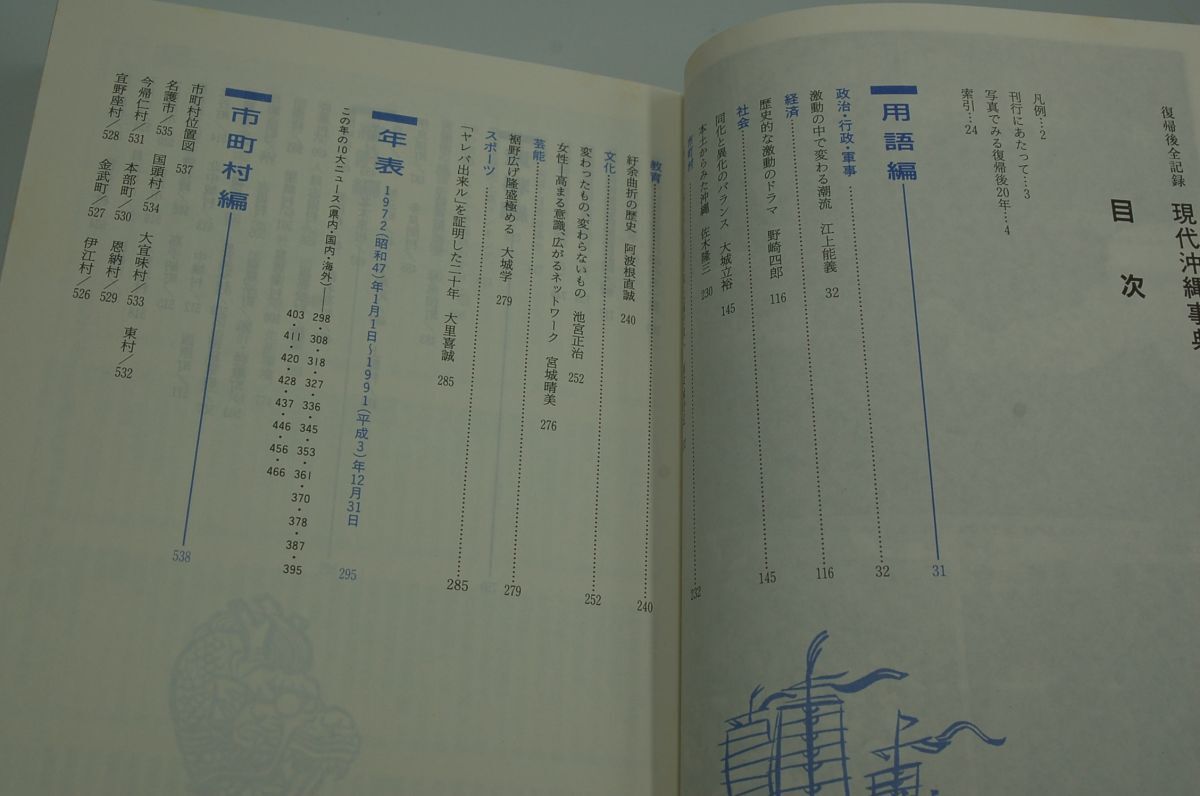 復帰後全記録
現代沖縄事典
目次
凡例…2
刊行にあたって…3
写真でみる復帰後20年…4
索引…24
用語編 31
政治・行政・軍事 32
激動の中で変わる潮流 江上能義 32
経済 116
歴史的な激動のドラマ 野崎四郎 116
社会 145
同化と異化のバランス 大城立裕 145
本土からみた沖縄 佐木隆三 230
市町村 232
教育 240
紆余曲折の歴史 阿波根直誠 240
文化 252
変わったもの、変わらないもの 池宮正治 252
女性―高まる意識、広がるネットワーク 宮城晴美 276
芸能 279
裾野広げ隆盛極める 大城学 279
スポーツ 285
「ヤレバ出来ル」を証明した二十年 大里喜誠 285
年表 1972(昭和47)年1月1日〜1991(平成3)年12月31日 295
この年の10大ニュース(県内・国内・海外)――298・308・318・327・336・345・353・361・370・378・387・395
403・411・420・428・437・446・456・466
市町村編 538
市町村位置図 537
名護市/535 国頭村/534 大宜味村/533 東村/532
今帰仁村/531 本部町/530 恩納村/529
宜野座村/528 金武町/527 伊江村/526